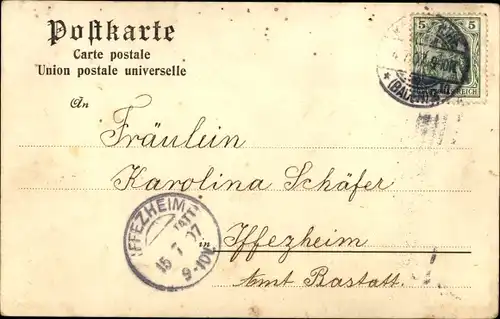 Postkarte
Carte postale
Union postale universelle
5 5
REICH
(BADEN)
An
Fräulein
Karolina Schäfer
in Iffezheim
Amt Rastatt.
IFFEZHEIM
15 7 07
9-10V.